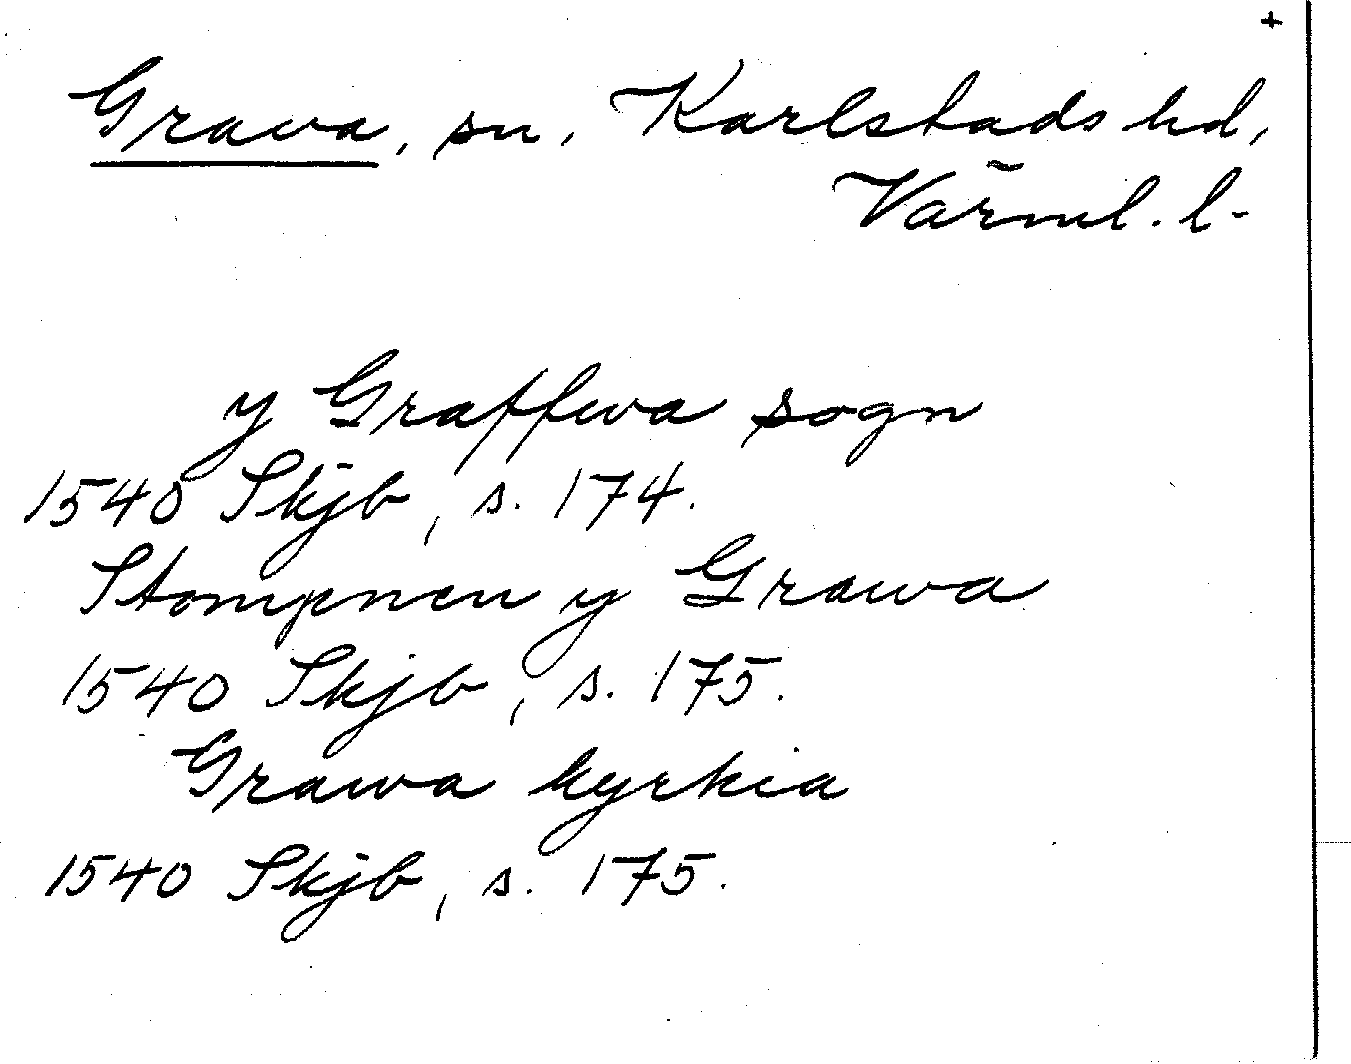 +
Grava, sn, Karlstads hd,
Värml. l.
y Graffwa sogn
1540 Skjb, s. 174.
Stompnen y Grawa
1540 Skjb, s. 175.
Grawa kyrkia
1540 Skjb, s. 175.